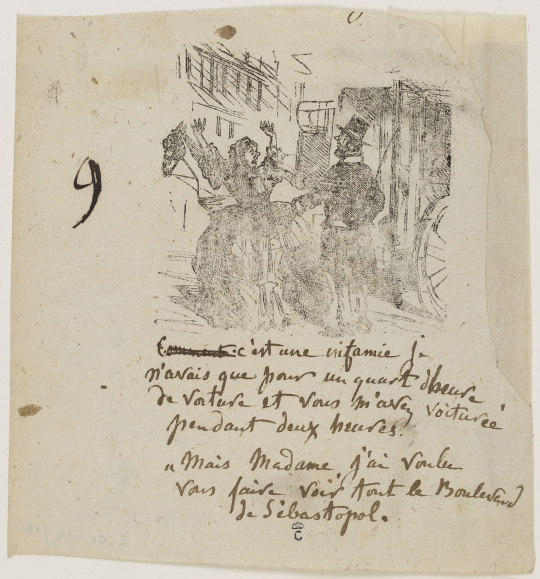 9
Comment c'est une infamie je
n'avais que pour un quart d'heure
de voiture et vous m'avez voiturée
pendant deux heures.
" Mais Madame j'ai voulu
vous faire voir tout le Boulevard
de Sébastopol.
C